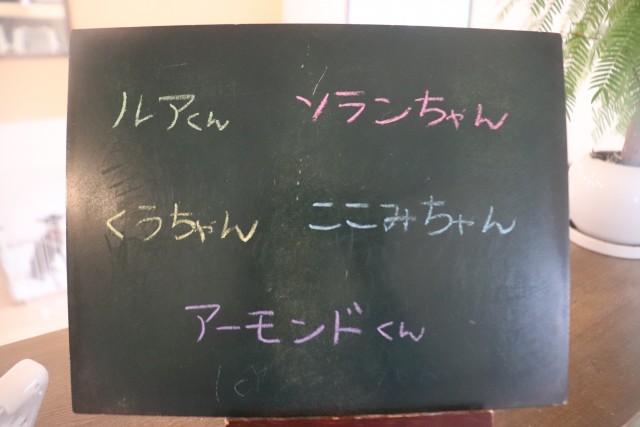 ルアくん ソランちゃん
くうちゃん ここみちゃん
アーモンドくん